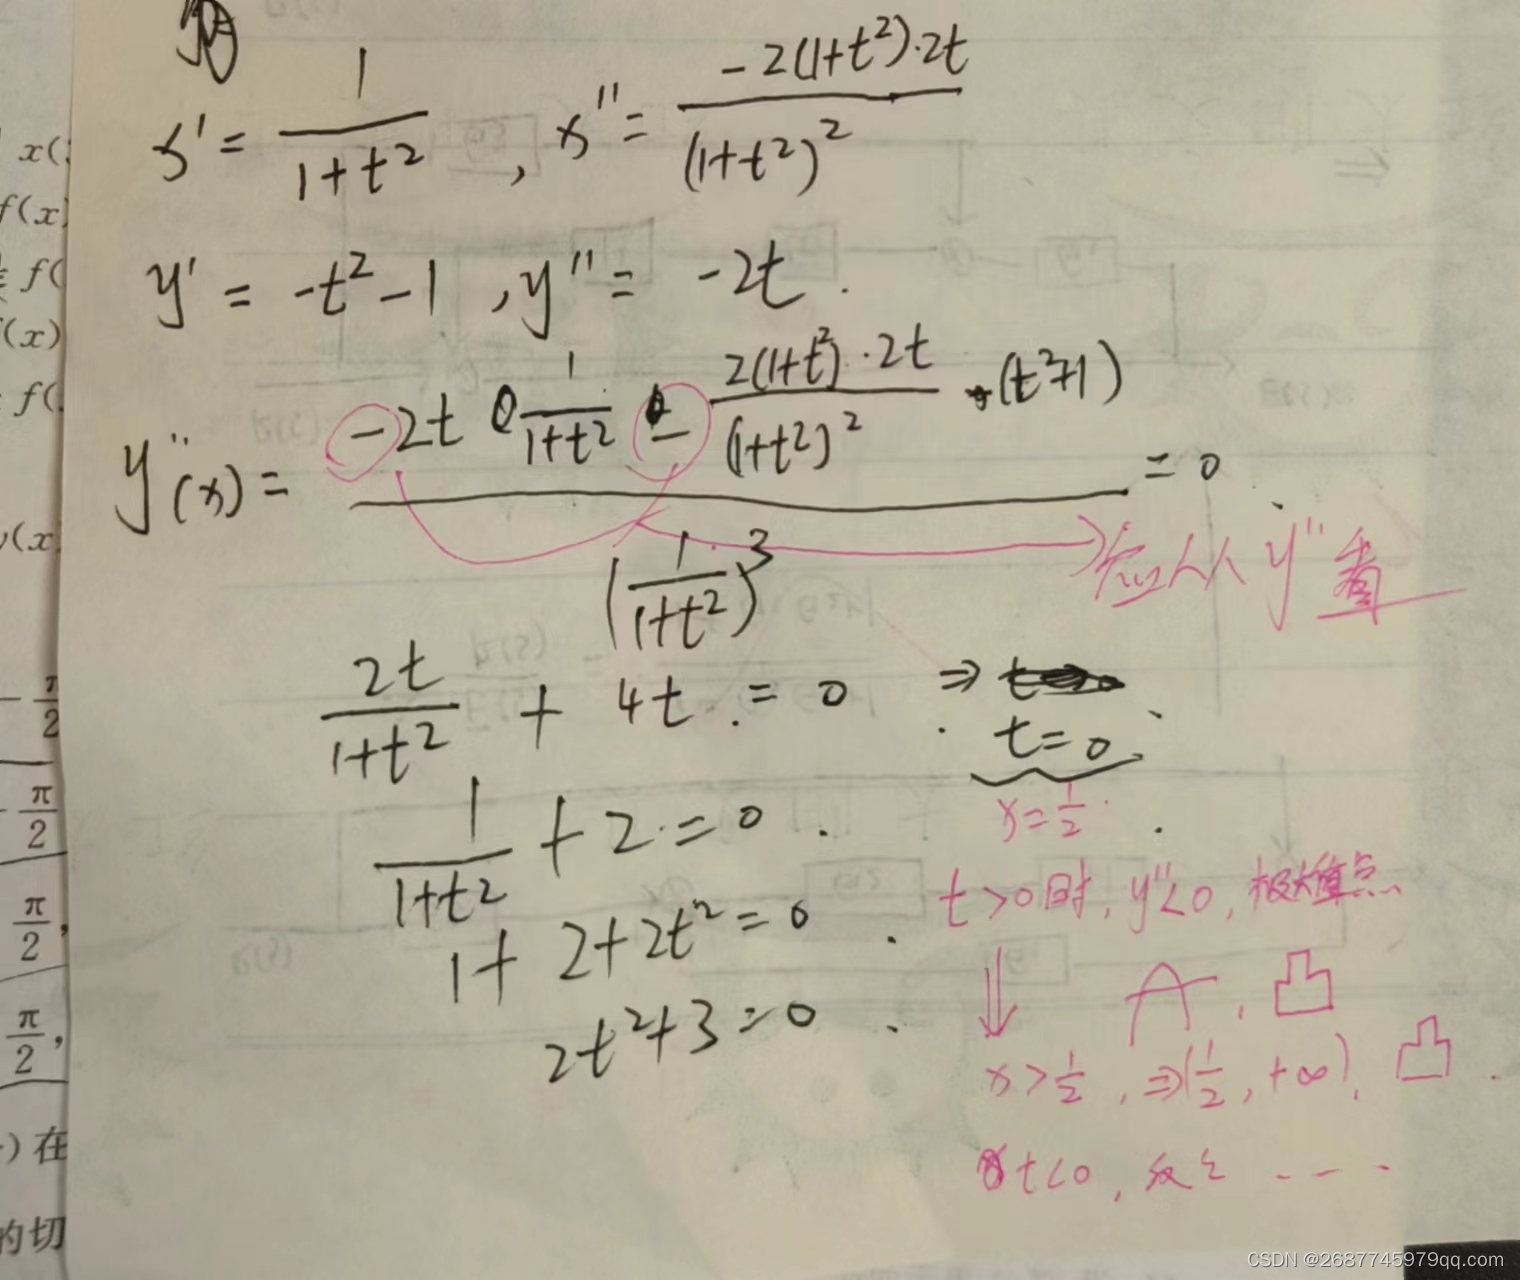 x' = 1/(1+t²) , x'' = -2(1+t²)·2t/(1+t²)²
y' = -t²-1 , y'' = -2t .
y''(x) = (-2t · 1/(1+t²) - 2(1+t²)·2t/(1+t²)² · (t²+1)) / (1/(1+t²))³ = 0
应从 y'' 看
2t/(1+t²) + 4t = 0 ⇒ t=0
x=1/2
1/(1+t²) + 2 = 0
t>0时, y''<0, 极大值点
1+ 2+2t² = 0
凸
2t²+3=0
x>1/2 , ⇒(1/2, +∞), 凸
t<0, 反之 ...
x(
f(x)
f(
(x)
f(
(x
π/2
π/2
π/2,
π/2,
)在
的切
CSDN @2687745979qq.com